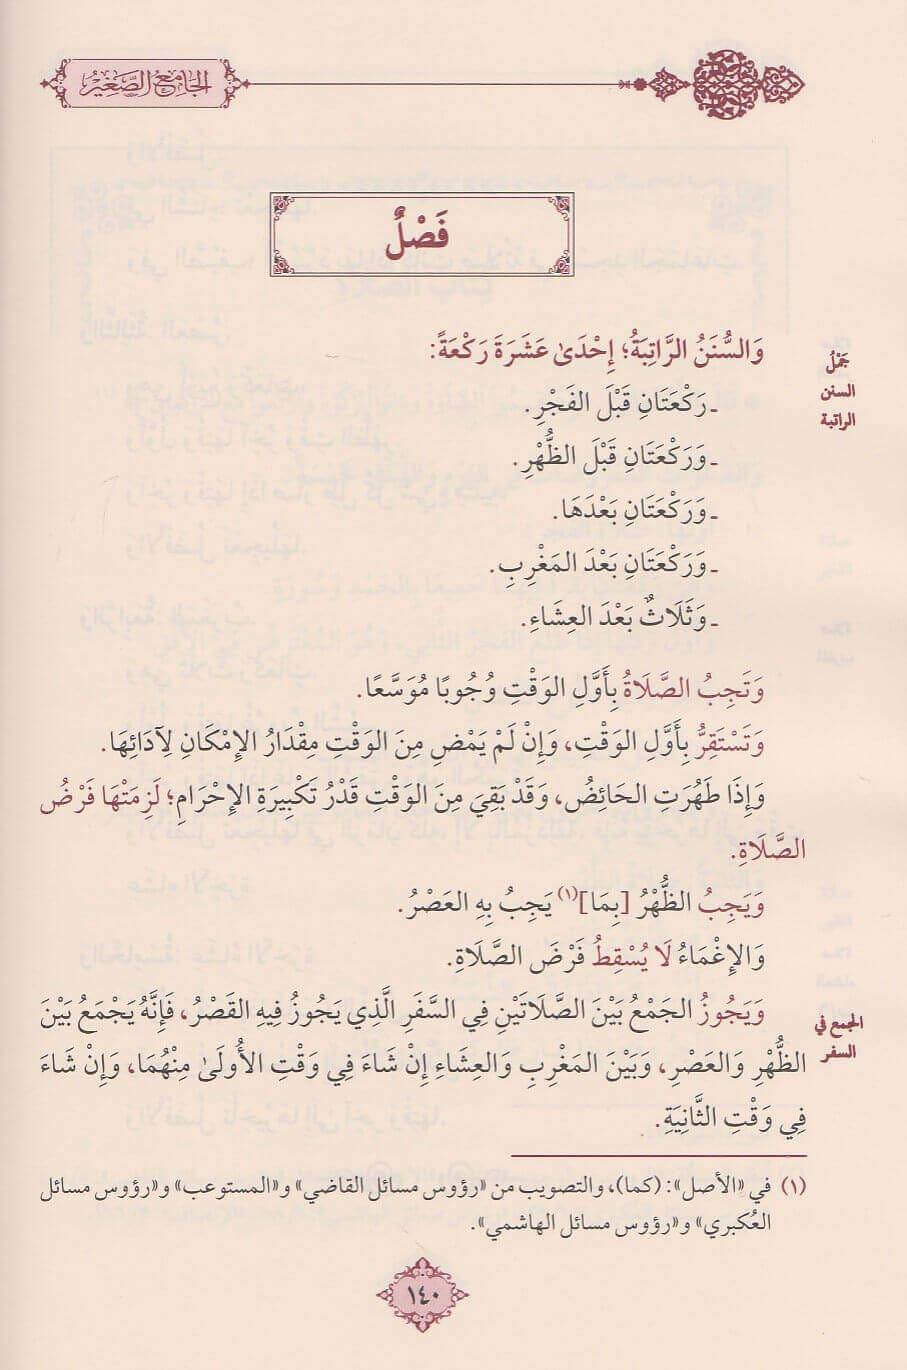 الجَامِعُ الصَّغِيْرُ
فَصْلٌ
وَالسُّنَنُ الرَّاتِبَةُ؛ إِحْدَىٰ عَشَرَةَ رَكْعَةً:
جَمْلُ
السنن
الراتبة
ـ رَكْعَتَانِ قَبْلَ الفَجْرِ.
ـ وَرَكْعَتَانِ قَبْلَ الظُّهْرِ.
ـ وَرَكْعَتَانِ بَعْدَهَا.
ـ وَرَكْعَتَانِ بَعْدَ المَغْرِبِ.
ـ وَثَلَاثٌ بَعْدَ العِشَاءِ.
وَتَجِبُ الصَّلَاةُ بِأَوَّلِ الوَقْتِ وُجُوبًا مُوَسَّعًا.
وَتَسْتَقِرُّ بِأَوَّلِ الوَقْتِ، وَإِنْ لَمْ يَمْضِ مِنَ الوَقْتِ مِقْدَارُ الإِمْكَانِ لِآدَائِهَا.
وَإِذَا طَهُرَتِ الحَائِضُ، وَقَدْ بَقِيَ مِنَ الوَقْتِ قَدْرُ تَكْبِيرَةِ الإِحْرَامِ؛ لَزِمَتْهَا فَرْضُ
الصَّلَاةِ.
وَيَجِبُ الظُّهْرُ [بِمَا](١) يَجِبُ بِهِ العَصْرُ.
وَالإِغْمَاءُ لَا يُسْقِطُ فَرْضَ الصَّلَاةِ.
وَيَجُوزُ الجَمْعُ بَيْنَ الصَّلَاتَيْنِ فِي السَّفَرِ الَّذِي يَجُوزُ فِيهِ القَصْرُ، فَإِنَّهُ يَجْمَعُ بَيْنَ
الجمع في
السفر
الظُّهْرِ وَالعَصْرِ، وَبَيْنَ المَغْرِبِ وَالعِشَاءِ إِنْ شَاءَ فِي وَقْتِ الأُولَىٰ مِنْهُمَا، وَإِنْ شَاءَ
فِي وَقْتِ الثَّانِيَةِ.
(١) في «الأصل»: (كما)، والتصويب من «رؤوس مسائل القاضي» و«المستوعب» و«رؤوس مسائل
العُكبري» و«رؤوس مسائل الهاشمي».
١٤٠